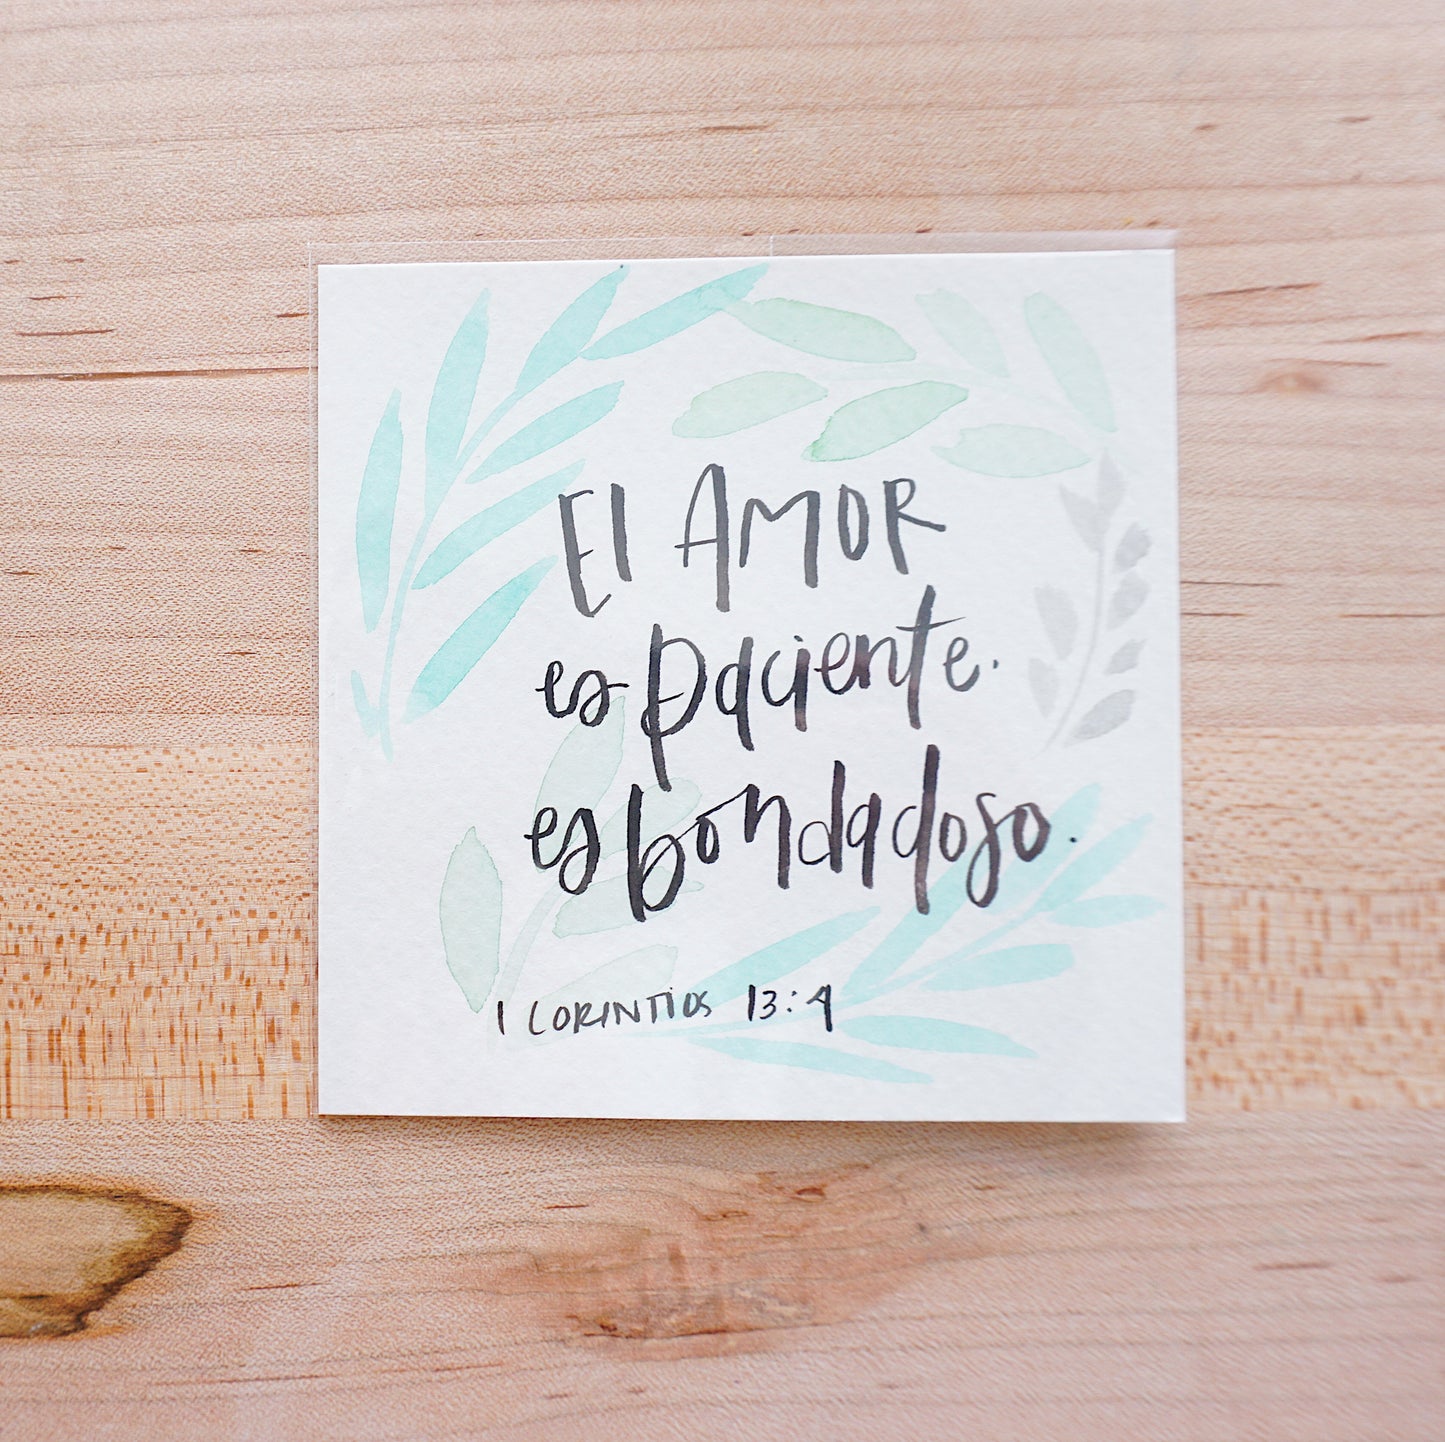 El AMOR
es paciente.
es bondadoso.
1 CORINTIOS 13:4